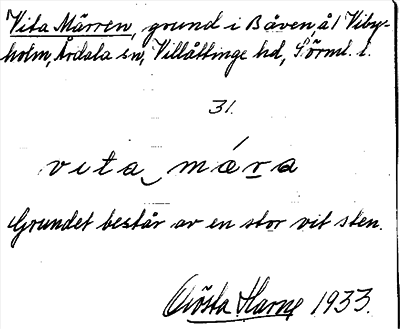 Vita Märren, grund i Båven, å l Viby-
holm, Årdala sn, Villåttinge hd, Sörml. l.
31.
vita mára
Grundet består av en stor vit sten.
Gösta Harne 1933.